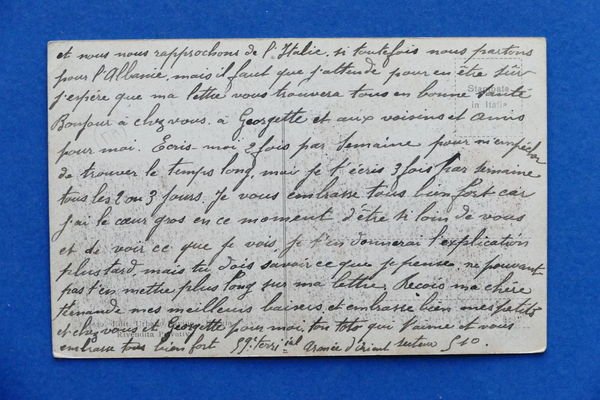 et nous nous rapprochons de l'Italie, si toutefois nous partons
pour l'Albanie, mais il faut que j'attende pour en être sûr
j'espère que ma lettre vous trouvera tous en bonne santé
Bonjour à chez vous. à Georgette et aux voisins et amis
pour moi. Ecris moi 2 fois par semaine pour m'empêcher
de trouver le temps long, moi je t'écris 3 fois par semaine
tous les 2 ou 3 jours. Je vous embrasse tous bien fort car
j'ai le cœur gros en ce moment d'être si loin de vous
et de voir ce que je vois, je t'en donnerai l'explication
plus tard, mais tu dois savoir ce que je pense ne pouvant
pas t'en mettre plus long sur ma lettre, Reçois ma chère
fernande mes meilleurs baisers et embrasse bien mes petits
et chez vous et Georgette pour moi, ton toto qui t'aime et vous
embrasse tous bien fort 59e terri ial Armée d'Orient secteur 510.
Stampata
in Italia